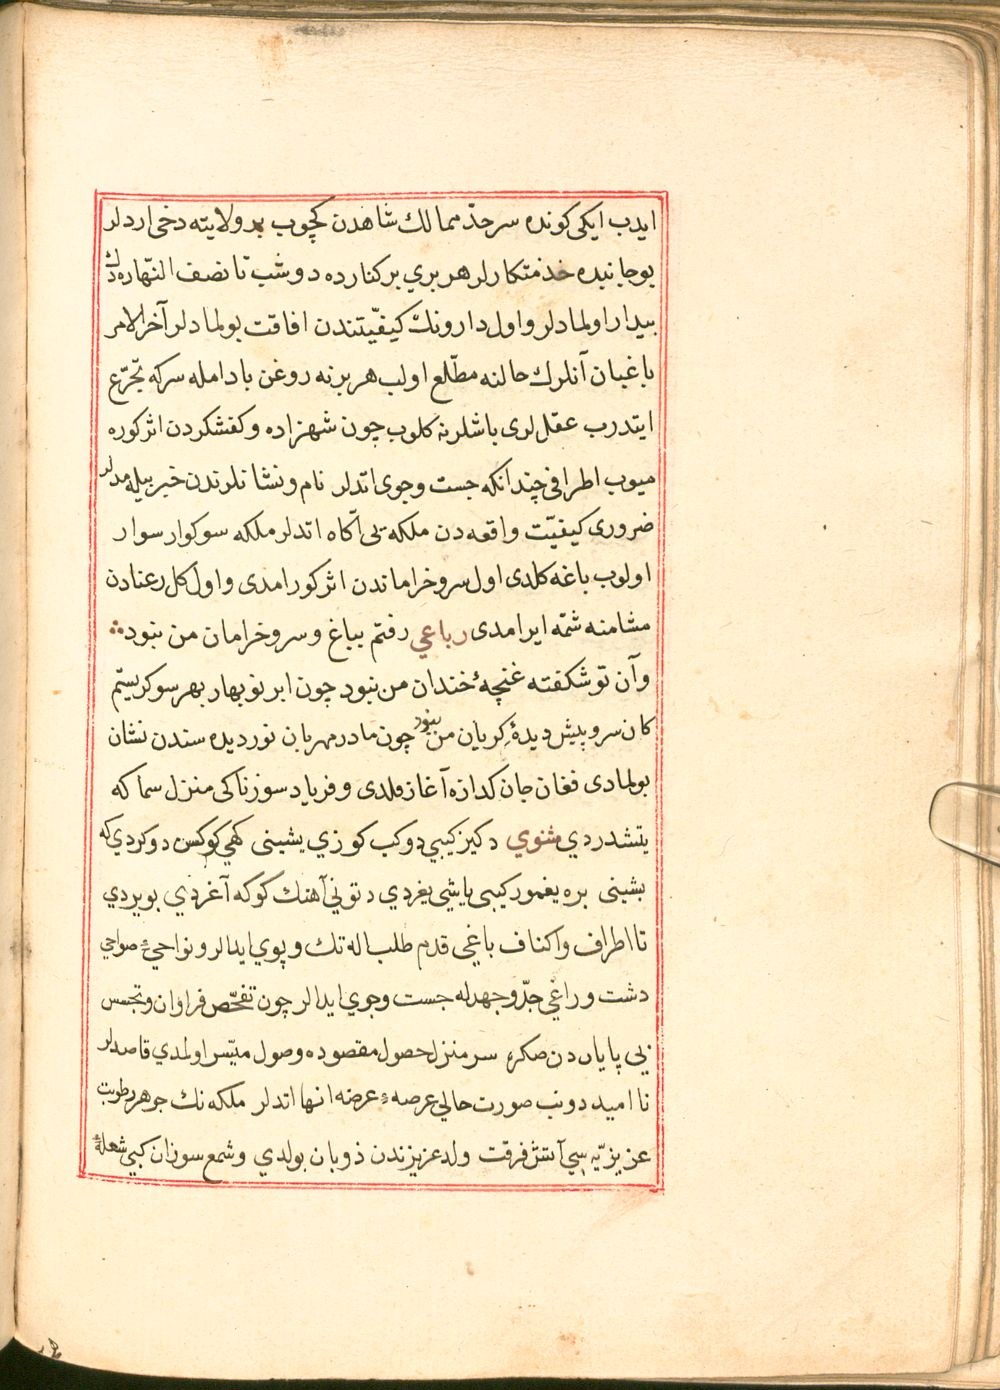 ايدب ايكى كونده سرحدّ ممالك شاهدن كچوب بر ولايته دخى ارديلر
بو جانبده خذمتكارلر هر بري بر كنارده دوشب تا نصف النّهاره دك
بيدار اولمادلر و اول دارونك كيفيّتندن افاقت بولمادلر آخر الامر
باغبان آنلرك حالنه مطّلع اولب هر برنه روغن بادامله سركه تجرّع
ايتدرب عقللرى باشلرنه كلوب چون شهزاده و كفشكردن اثر كوره
ميوب اطرافى چندانكه جست و جوى اتدلر نام و نشانلرندن خبر بيله مدلر
ضرورى كيفيّت واقعه دن ملكه يى آكاه اتدلر ملكه سوكوار سوار
اولوب باغه كلدى اول سرو خراماندن اثر كورامدى و اول كل رعنادن
مشامنه شمّه ايرامدى رباعي رفتم بباغ و سرو خرامان من نبود
وآن نو شكفته غنچهٔ خندان من نبود چون ابر نوبهار بهر سو كريستم
كان سرو پيش ديدهٔ كريان من نبود چون مادر مهربان نور ديده سندن نشان
بولمادى فغان جان كدازه آغاز قلدى و فرياد سوزناكى منزل سماكه
يتشدردي مثنوي دكيز كيبي دوكب كوزي يشينى كهي كوكسن دوكردي كه
بشينى بره يغمور كيبى ياشي يغردي دتوني آهنك كوكه آغردي بويردي
تا اطراف و اكناف باغى قدم طلب اله تك و پوي ايدالر و نواحيء صواحي
دشت و راغي جدّ و جهدله جست و جوي ايدالر چون تفحّص فراوان و تجسس
بى پاياندن صكره سر منزل حصول مقصوده وصول ميّسر اولمدي قاصدلر
نا اميد دونب صورت حالي عرصهء عرضه انها اتدلر ملكه نك جوهر رطوبت
عزيزيّه سي آتش فرقت ولد عزيزندن ذوبان بولدي و شمع سوزان كبي شعلهٔ